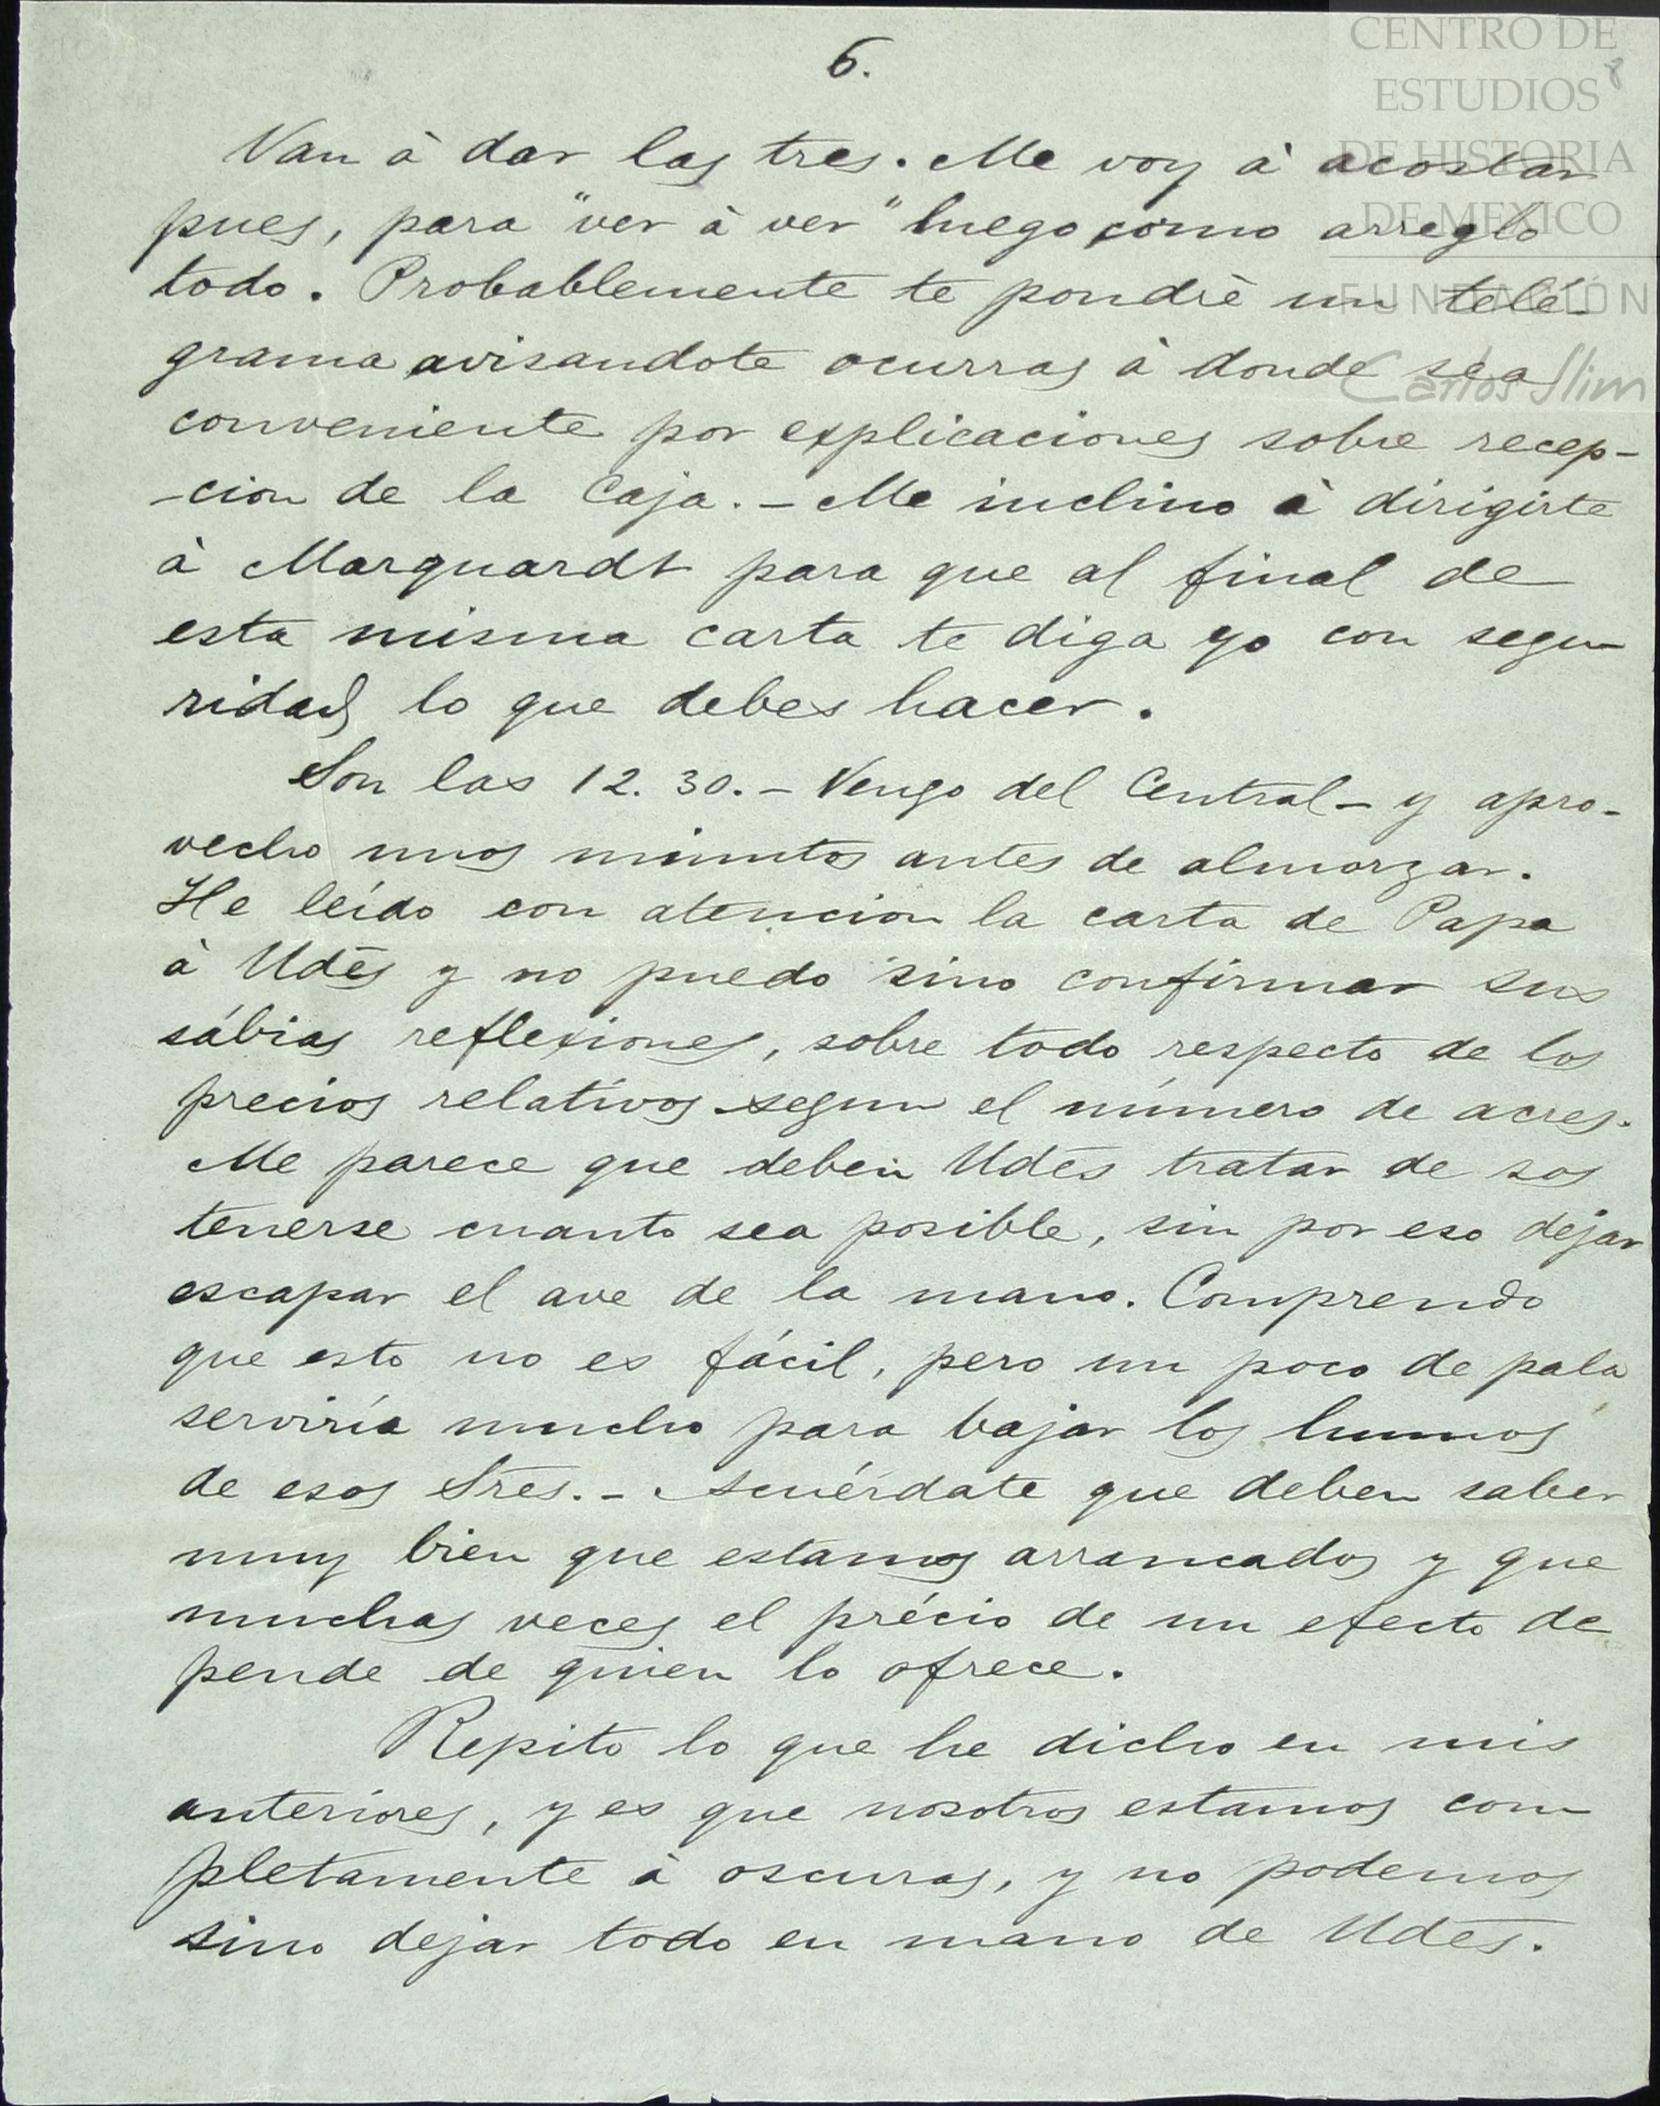 6.
8
CENTRO DE
ESTUDIOS
DE HISTORIA
DE MEXICO
FUNDACIÓN
Carlos Slim
Van à dar las tres. Me voy à acostar
pues, para "ver à ver" luego como arreglo
todo. Probablemente te pondrè un telé-
grama avisandote ocurras à donde sea
conveniente por explicaciones sobre recep-
-cion de la Caja. - Me inclino à dirigirte
à Marquardt para que al final de
esta misma carta te diga yo con segu
ridad lo que debes hacer.
Son las 12.30. - Vengo del Central - y apro-
vecho unos minutos antes de almorzar.
He leído con atencion la carta de Papa
à Udes y no puedo sino confirmar sus
sábias reflexiones, sobre todo respecto de los
precios relativos segun el número de acres.
Me parece que deben Udes tratar de sos
tenerse cuanto sea posible, sin por eso dejar
escapar el ave de la mano. Comprendo
que esto no es fácil, pero un poco de pala
serviría mucho para bajar los humos
de esos Sres. - Acuérdate que deben saber
muy bien que estamos arrancados y que
muchas veces el précio de un efecto de
pende de quien lo ofrece.
Repito lo que he dicho en mis
anteriores, y es que nosotros estamos com
pletamente à oscuras, y no podemos
sino dejar todo en mano de Udes.